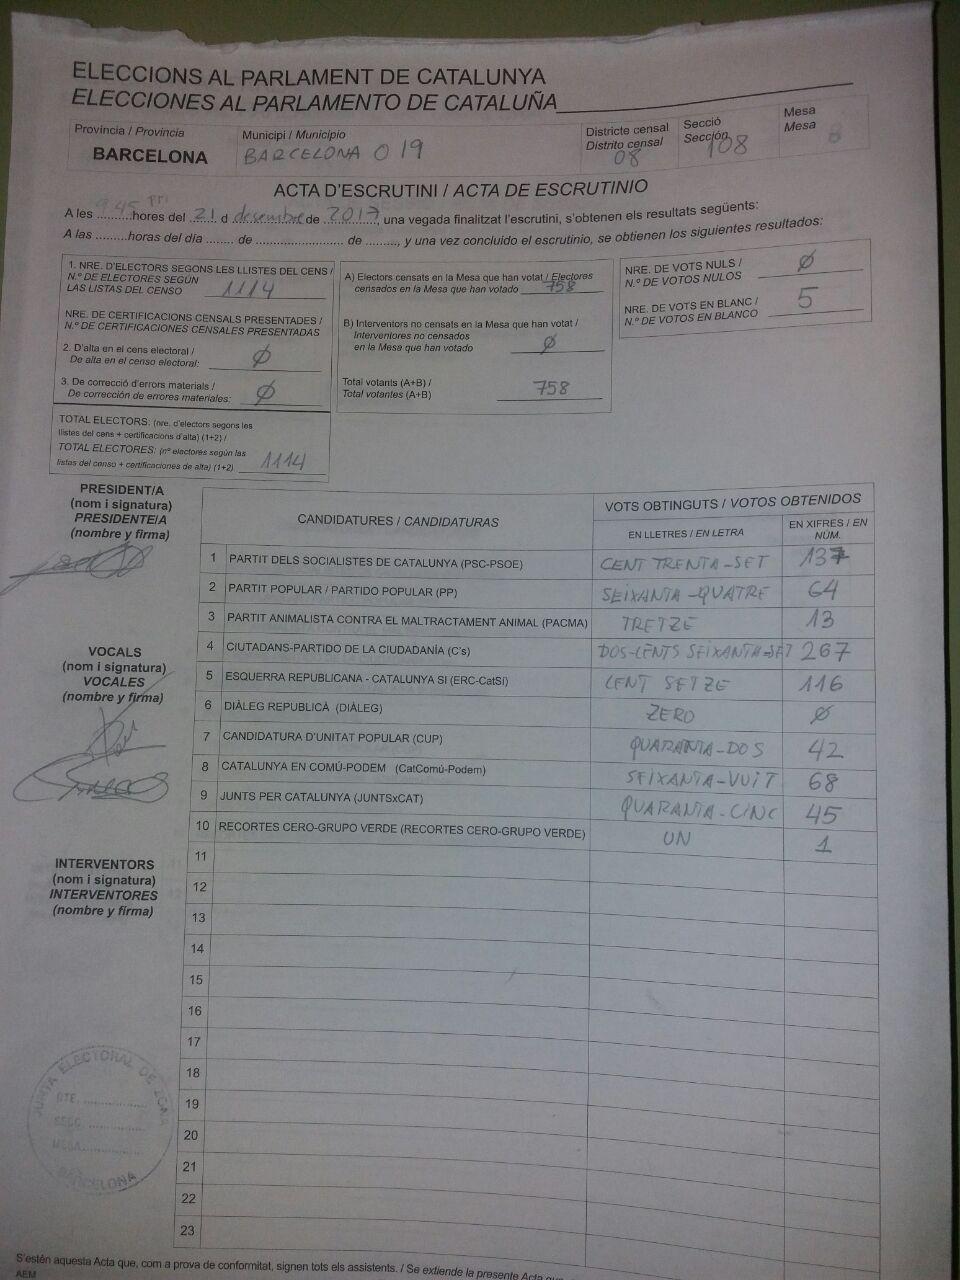 ELECCIONS AL PARLAMENT DE CATALUNYA
ELECCIONES AL PARLAMENTO DE CATALUÑA
Provincia / Provincia
BARCELONA
Municipi / Municipio
BARCELONA 019
Districte censal
Distrito censal
08
Secció
Sección
108
Mesa
Mesa
B
ACTA D'ESCRUTINI / ACTA DE ESCRUTINIO
A les 9.45 pm hores del 21 d desembre de 2017, una vegada finalitzat l'escrutini, s'obtenen els resultats següents:
A las .........horas del día ........ de ........................ de ........., y una vez concluido el escrutinio, se obtienen los siguientes resultados:
1. NRE. D'ELECTORS SEGONS LES LLISTES DEL CENS /
N.º DE ELECTORES SEGÚN
LAS LISTAS DEL CENSO 1114
NRE. DE CERTIFICACIONS CENSALS PRESENTADES /
N.º DE CERTIFICACIONES CENSALES PRESENTADAS
2. D'alta en el cens electoral /
De alta en el censo electoral: Ø
3. De correcció d'errors materials /
De corrección de errores materiales: Ø
TOTAL ELECTORS: (nre. d'electors segons les
llistes del cens + certificacions d'alta) (1+2) /
TOTAL ELECTORES: (nº electores según las
listas del censo + certificaciones de alta) (1+2) 1114
A) Electors censats en la Mesa que han votat / Electores
censados en la Mesa que han votado 758
B) Interventors no censats en la Mesa que han votat /
Interventores no censados
en la Mesa que han votado Ø
Total votants (A+B) /
Total votantes (A+B) 758
NRE. DE VOTS NULS /
N.º DE VOTOS NULOS Ø
NRE. DE VOTS EN BLANC /
N.º DE VOTOS EN BLANCO 5
PRESIDENT/A
(nom i signatura)
PRESIDENTE/A
(nombre y firma)
VOCALS
(nom i signatura)
VOCALES
(nombre y firma)
INTERVENTORS
(nom i signatura)
INTERVENTORES
(nombre y firma)
CANDIDATURES / CANDIDATURAS
VOTS OBTINGUTS / VOTOS OBTENIDOS
EN LLETRES / EN LETRA
EN XIFRES / EN NÚM.
1 PARTIT DELS SOCIALISTES DE CATALUNYA (PSC-PSOE) CENT TRENTA-SET 137
2 PARTIT POPULAR / PARTIDO POPULAR (PP) SEIXANTA-QUATRE 64
3 PARTIT ANIMALISTA CONTRA EL MALTRACTAMENT ANIMAL (PACMA) TRETZE 13
4 CIUTADANS-PARTIDO DE LA CIUDADANÍA (C's) DOS-CENTS SEIXANTA-SET 267
5 ESQUERRA REPUBLICANA - CATALUNYA SI (ERC-CatSí) CENT SETZE 116
6 DIÀLEG REPUBLICÀ (DIÀLEG) ZERO Ø
7 CANDIDATURA D'UNITAT POPULAR (CUP) QUARANTA-DOS 42
8 CATALUNYA EN COMÚ-PODEM (CatComú-Podem) SEIXANTA-VUIT 68
9 JUNTS PER CATALUNYA (JUNTSxCAT) QUARANTA-CINC 45
10 RECORTES CERO-GRUPO VERDE (RECORTES CERO-GRUPO VERDE) UN 1
11
12
13
14
15
16
17
18
19
20
21
22
23
JUNTA ELECTORAL DE ZONA
DTE. ..................
SECC. ..................
MESA ..................
BARCELONA
S'estén aquesta Acta que, com a prova de conformitat, signen tots els assistents. / Se extiende la presente Acta que
AEM